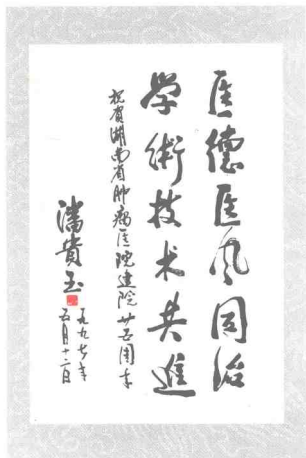 医德医风同治
学術技术共進
祝賀湖南省肿瘤医院建院廿五周年
潘貴玉
一九九七年
五月十二日